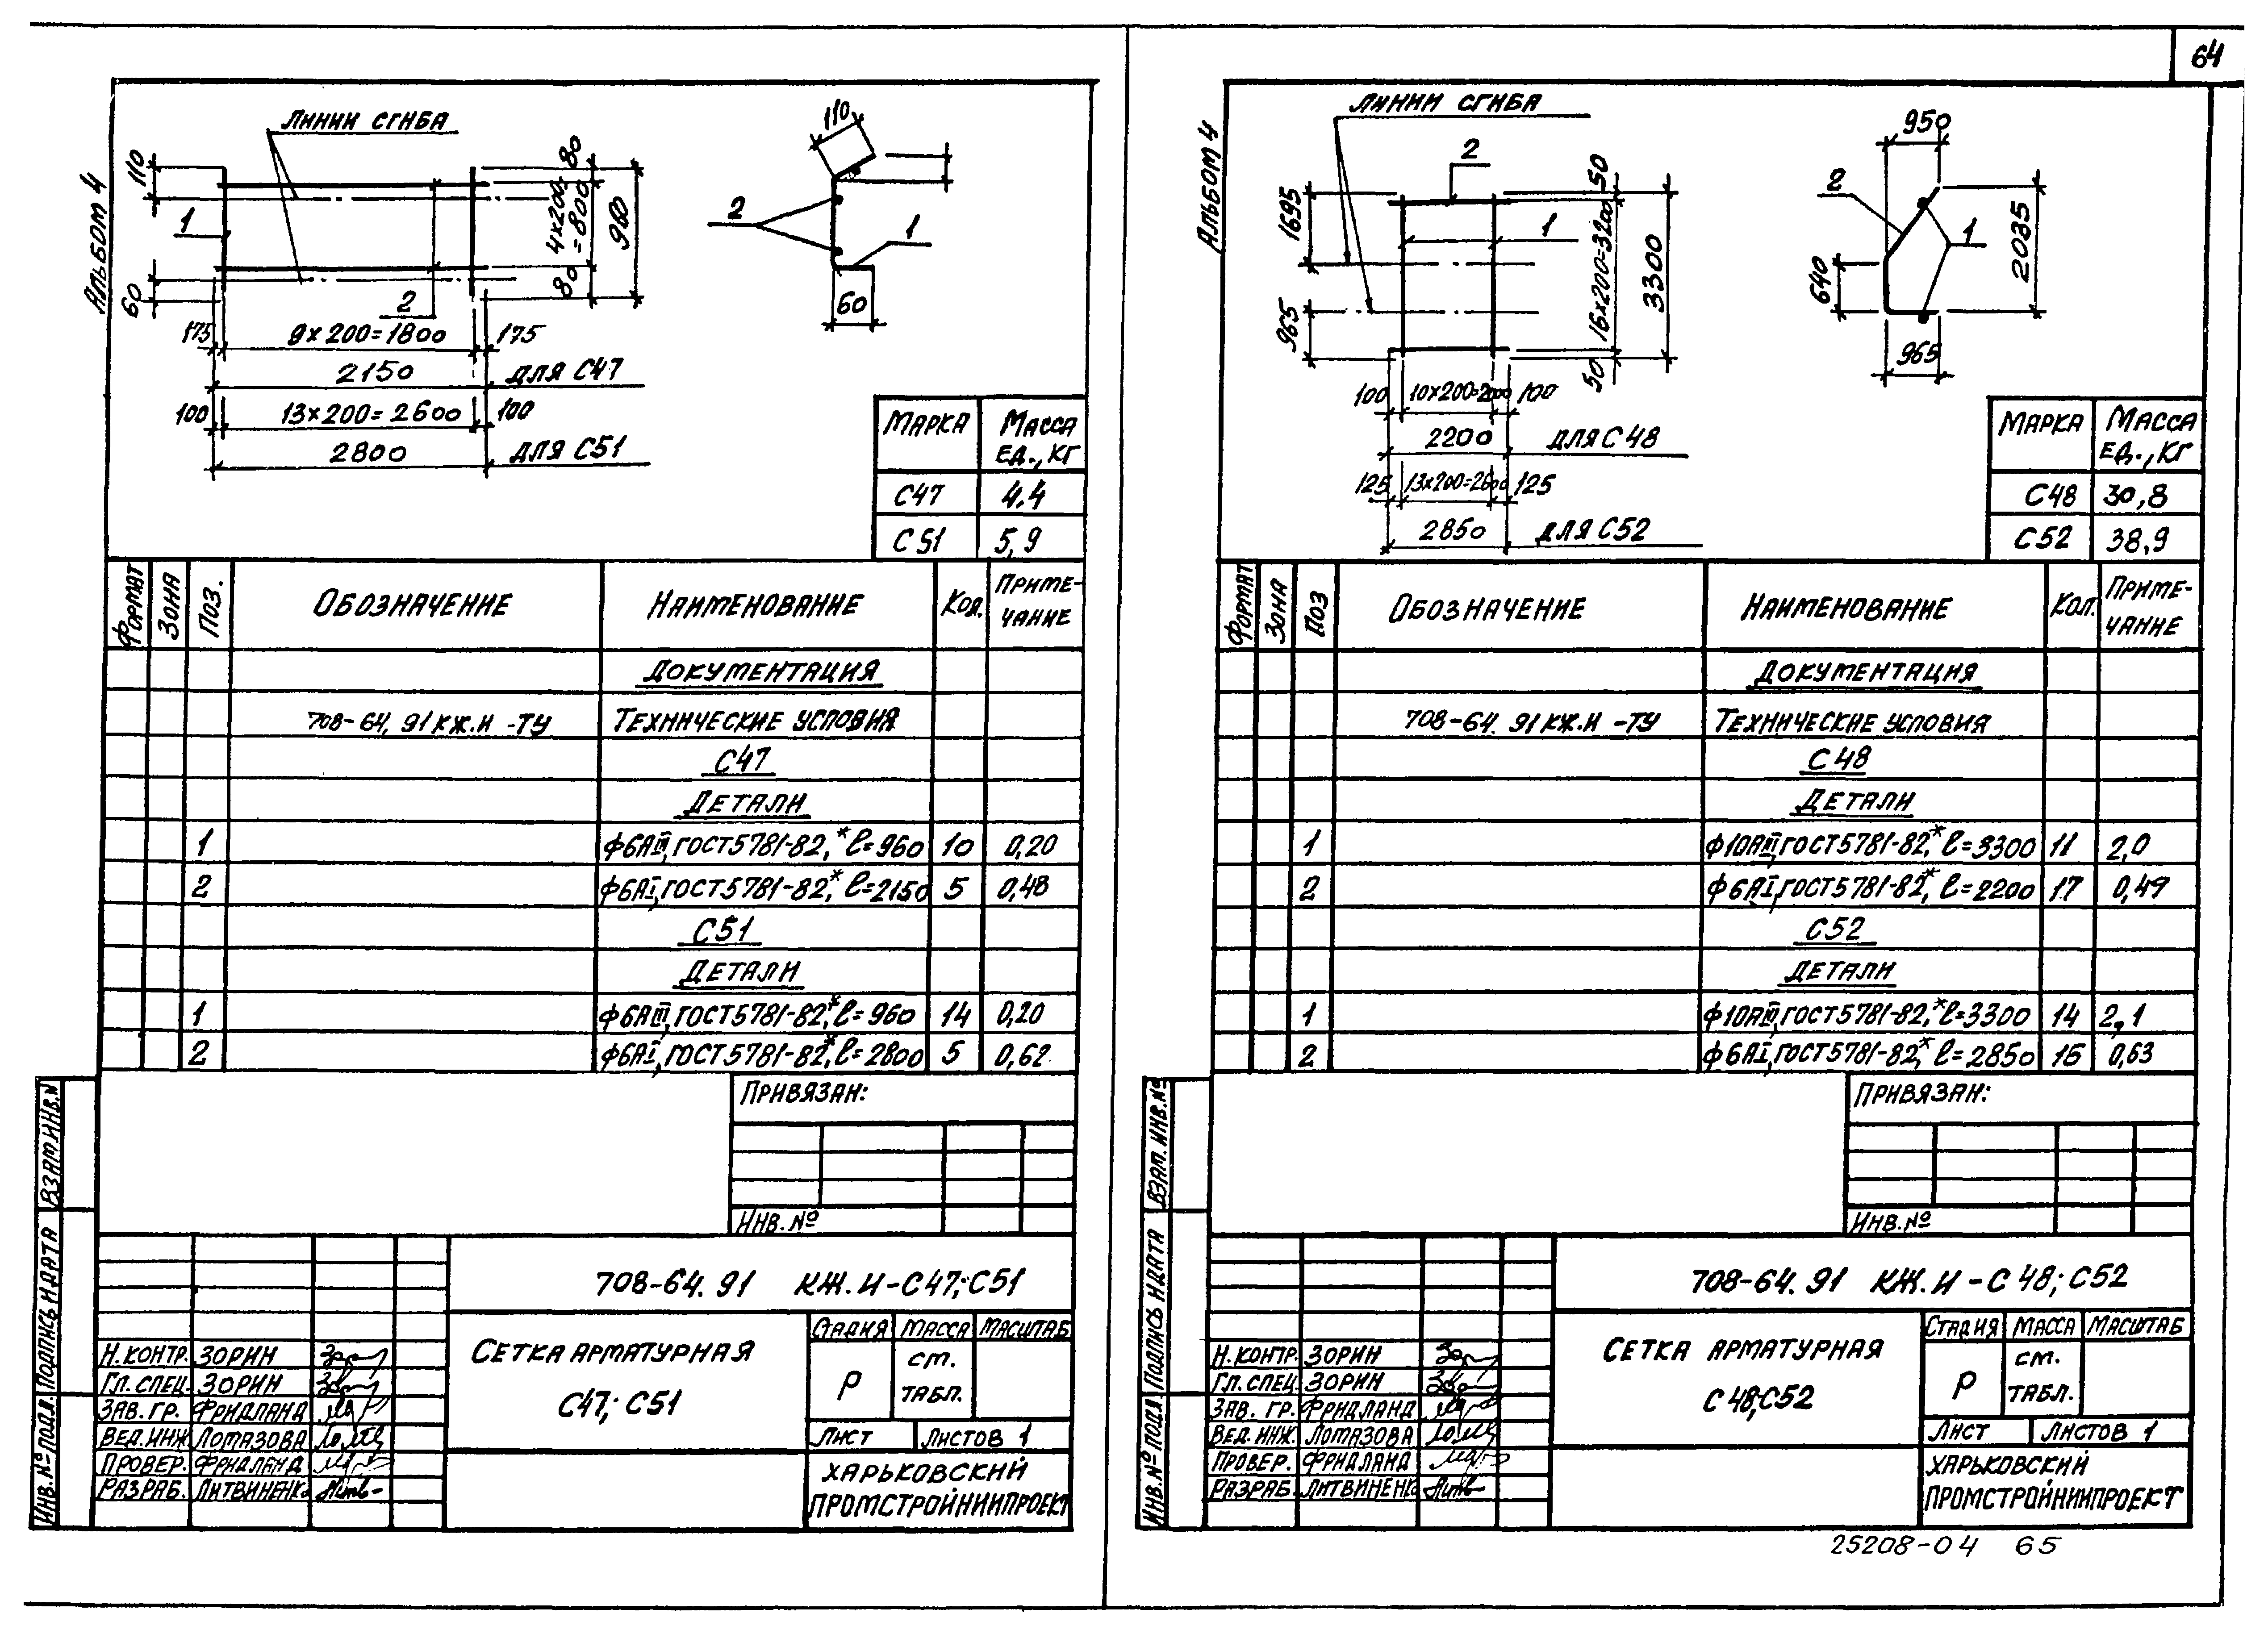 64
Альбом 4
Линии сгиба
110
1
60
2
80
4×200=
=800
80
960
175
9×200=1800
175
2150
для С47
100
13×200=2600
100
2800
для С51
110
2
1
60
Марка Масса ед., кг
С47 4,4
С51 5,9
Формат Зона Поз. Обозначение Наименование Кол. Примечание
Документация
708-64.91 КЖ.И -ТУ Технические условия
С47
Детали
1 ф6АIII, ГОСТ 5781-82,* ℓ=960 10 0,20
2 ф6АI, ГОСТ 5781-82,* ℓ=2150 5 0,48
С51
Детали
1 ф6АIII, ГОСТ 5781-82,* ℓ=960 14 0,20
2 ф6АI, ГОСТ 5781-82,* ℓ=2800 5 0,62
Привязан:
Инв. №
Взам инв. №
Подпись и дата
Инв. № подл.
708-64.91 КЖ.И-С47; С51
Сетка арматурная
С47; С51
Стадия Масса Масштаб
Р см. табл.
Лист Листов 1
Харьковский
Промстройниипроект
Н.контр. Зорин
Гл. спец. Зорин
Зав. гр. Фридланд
Вед. инж. Ломазова
Провер. Фридланд
Разраб. Литвиненко
Альбом 4
Линии сгиба
2
1695
965
1
50
16×200=3200
50
3300
100
10×200=2000
100
2200
для С48
125
13×200=2600
125
2850
для С52
950
2
1
640
2085
965
Марка Масса ед., кг
С48 30,8
С52 38,9
Формат Зона Поз Обозначение Наименование Кол. Примечание
Документация
708-64.91 КЖ.И -ТУ Технические условия
С48
Детали
1 ф10АIII, ГОСТ 5781-82,* ℓ=3300 11 2,0
2 ф6АI, ГОСТ 5781-82,* ℓ=2200 17 0,49
С52
Детали
1 ф10АIII, ГОСТ 5781-82,* ℓ=3300 14 2,1
2 ф6АI, ГОСТ 5781-82,* ℓ=2850 15 0,63
Привязан:
Инв. №
Взам. инв. №
Подпись и дата
Инв. № подл.
708-64.91 КЖ.И-С48; С52
Сетка арматурная
С48; С52
Стадия Масса Масштаб
Р см. табл.
Лист Листов 1
Харьковский
Промстройниипроект
Н.контр. Зорин
Гл. спец. Зорин
Зав. гр. Фридланд
Вед. инж. Ломазова
Провер. Фридланд
Разраб. Литвиненко
25208-04 65